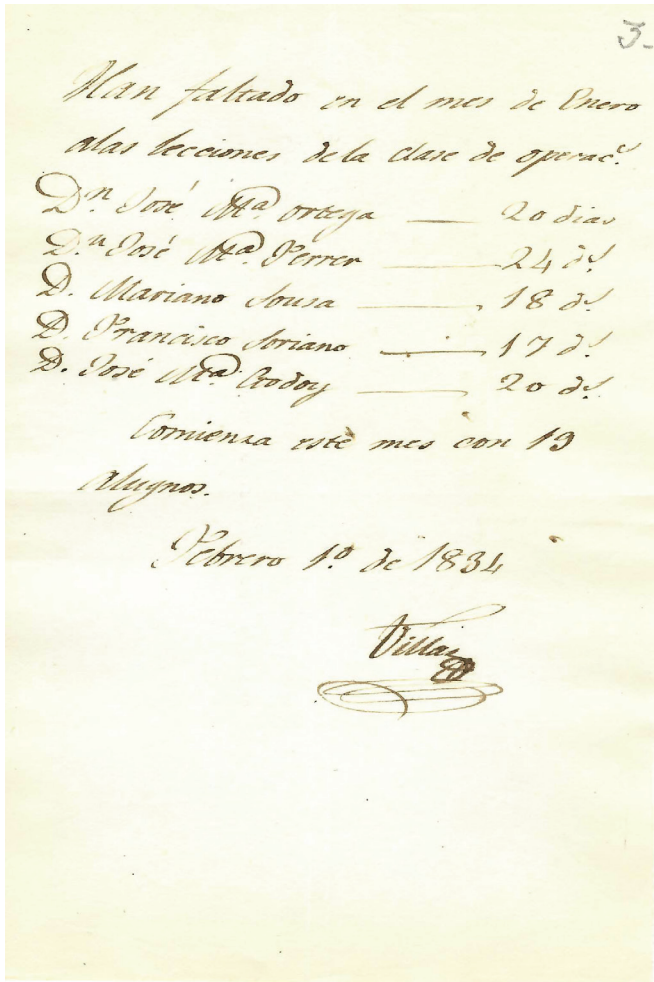 3-
Han faltado en el mes de Enero
alas lecciones dela clase de operac.ˢ
D.ⁿ José M.ª Ortega — 20 dias
D.ⁿ José M.ª Ferrer — 24 d.ˢ
D. Mariano Sousa — 18 d.ˢ
D. Francisco Soriano — 17 d.ˢ
D. José M.ª Godoy — 20 d.ˢ
Comienza este mes con 19
alugnos.
Febrero 1.º de 1834